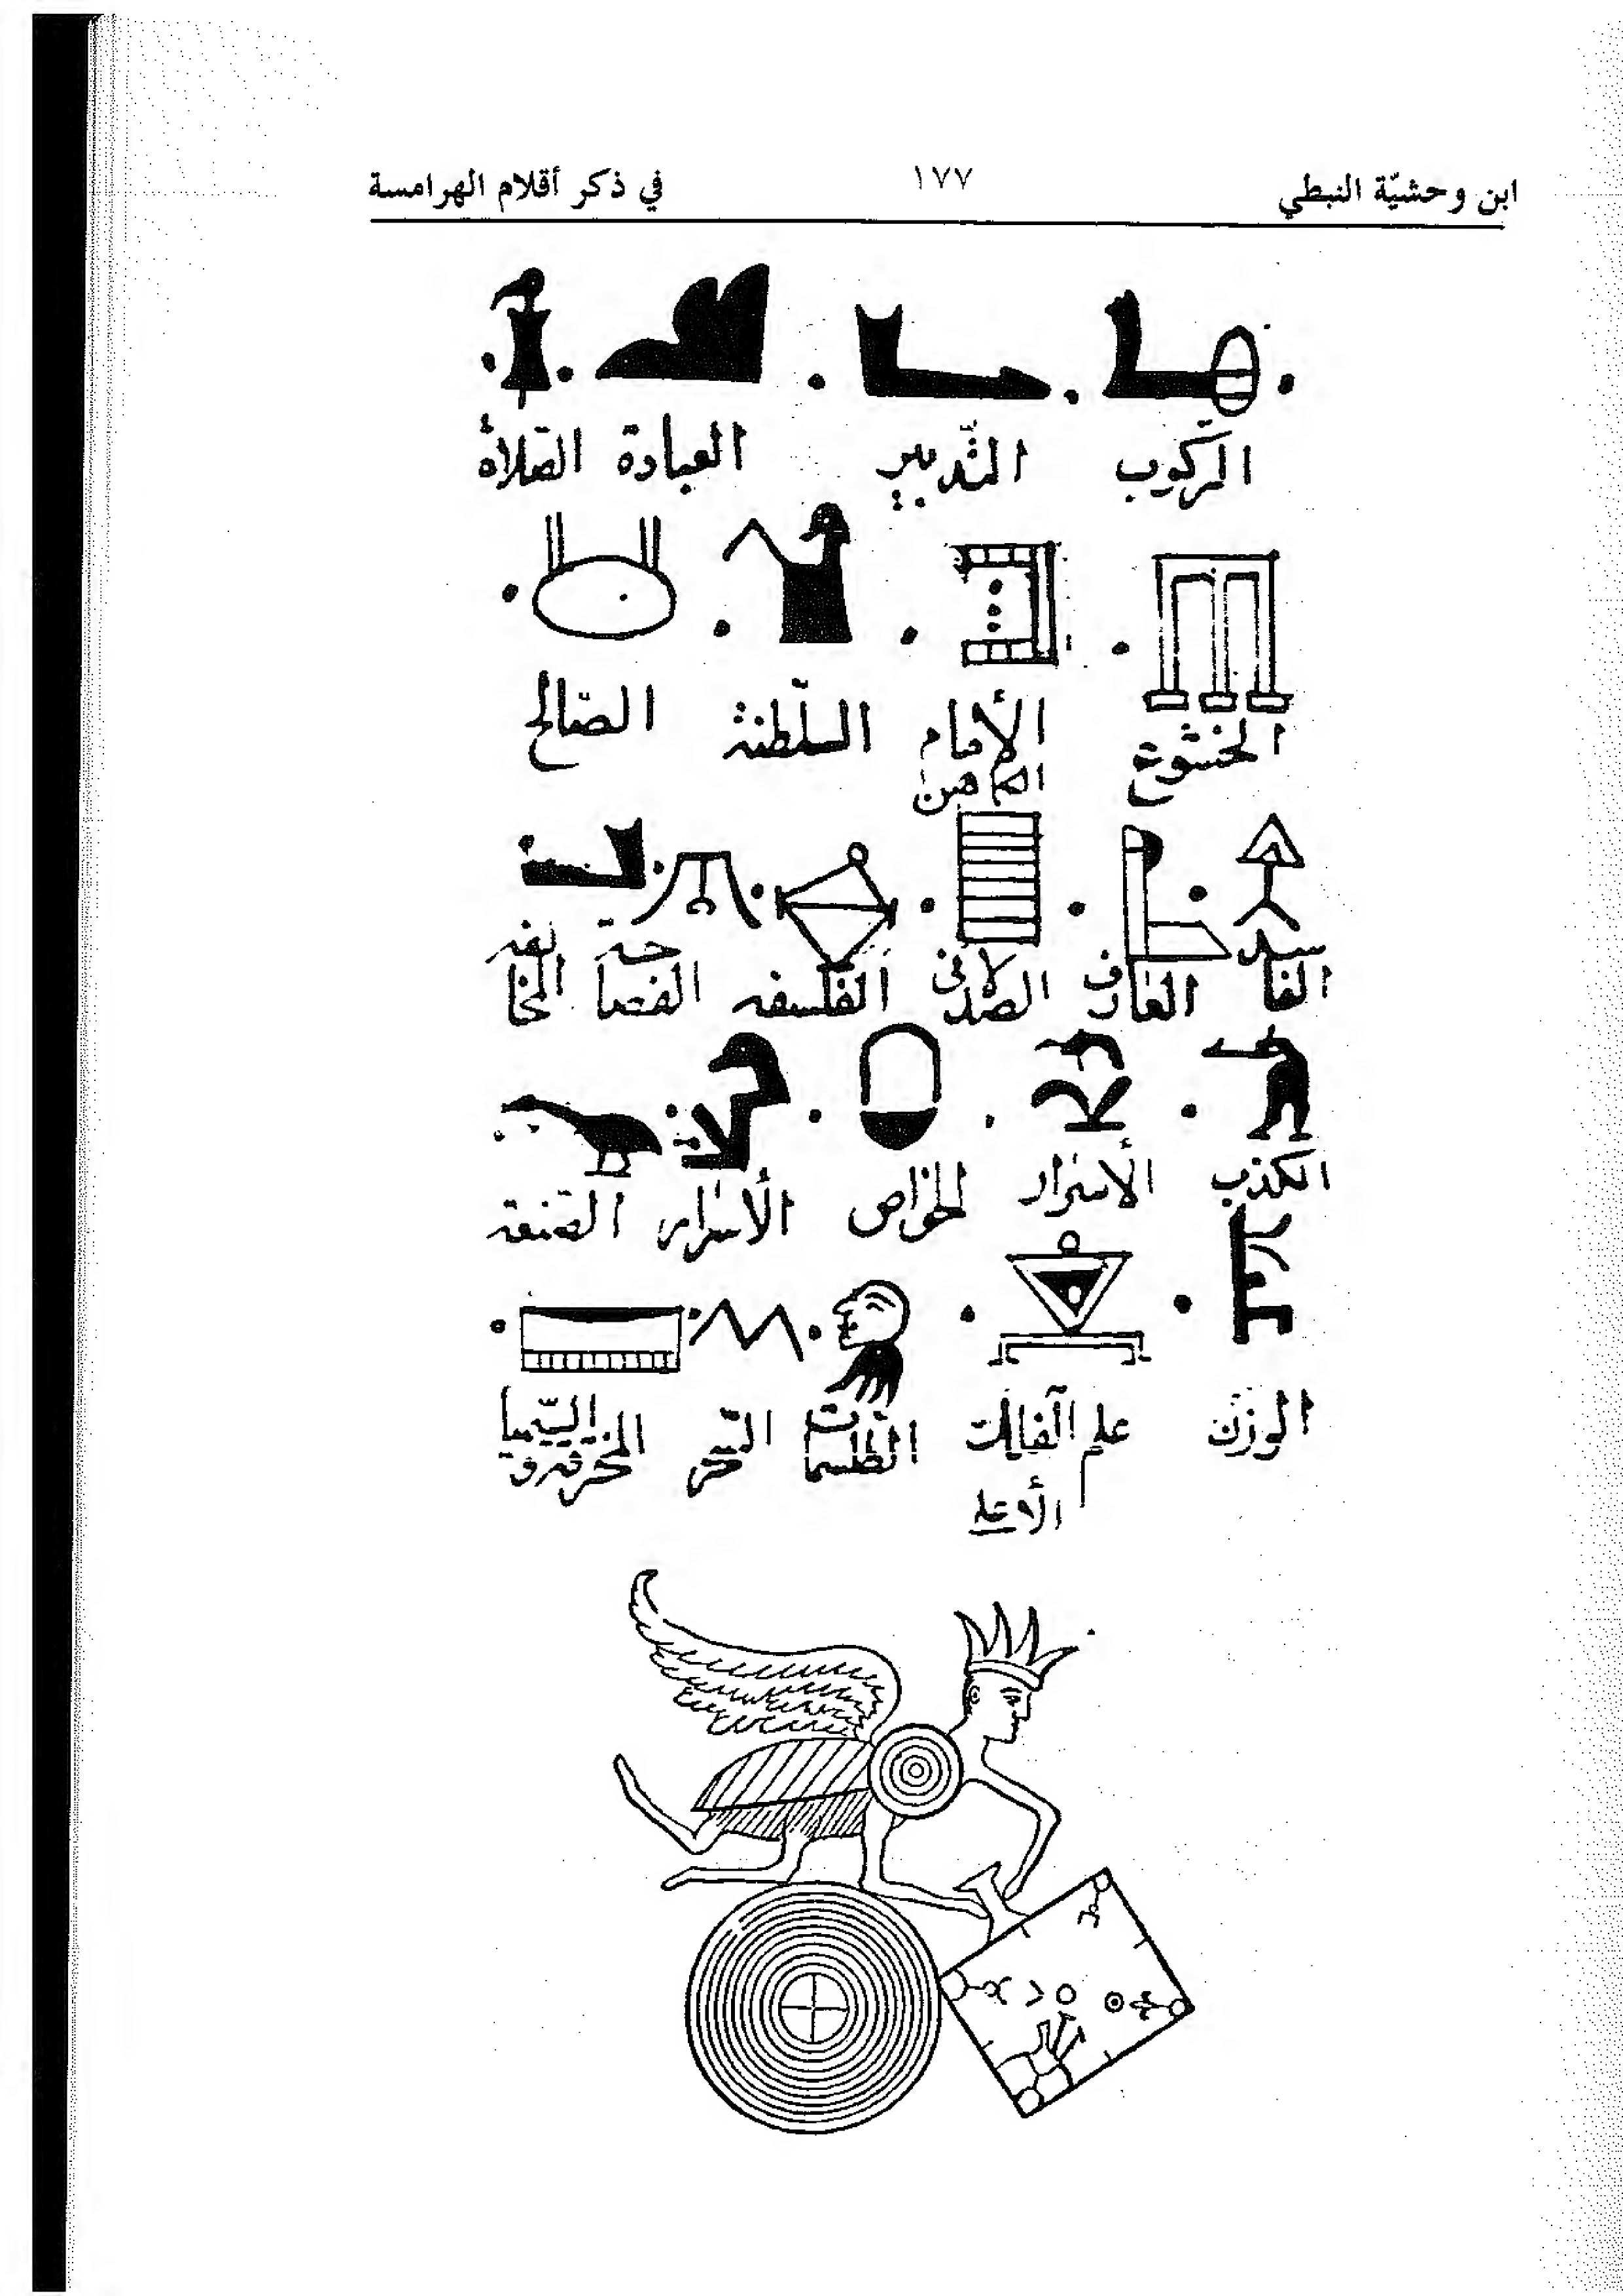 ابن وحشيّة النبطي ١٧٧ في ذكر أقلام الهرامسة
الركوب التّدبير العبادة الصّلاة
الخشوع الأمام السّلطنة الصّالح
الكاهن
الفاسد العارف الفلسفه الفصاحة
الكذب الأسرار الخواص الأسرار الصّنعة
الوزن علم الفلك الطلسمات السّحر